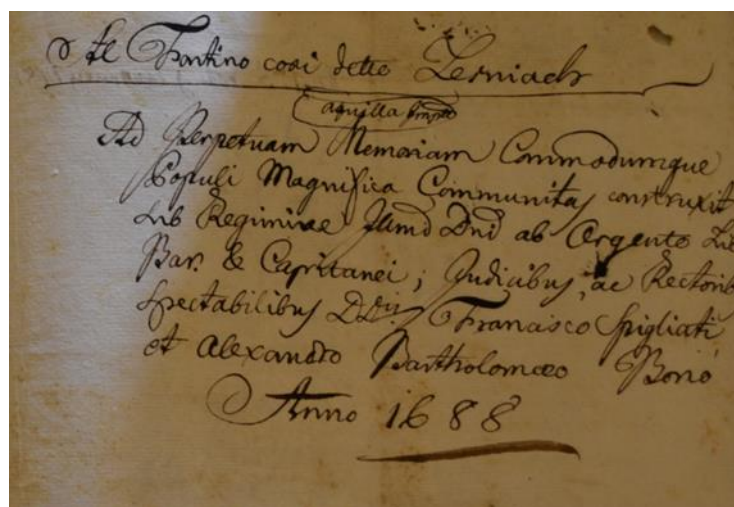 Al Frantino così detto Zerniach
aquilla
Ad Perpetuam Memoriam Commodumque
Populi Magnifica Communitas construxit
sub Regimine Illmi Dni ab Argento Li
Bar. & Capitanei; Judicibus, ac Rectorib
spectabilibus DDis Francisco Spigliati
et Alexandro Bartholomæo Bonò
Anno 1688